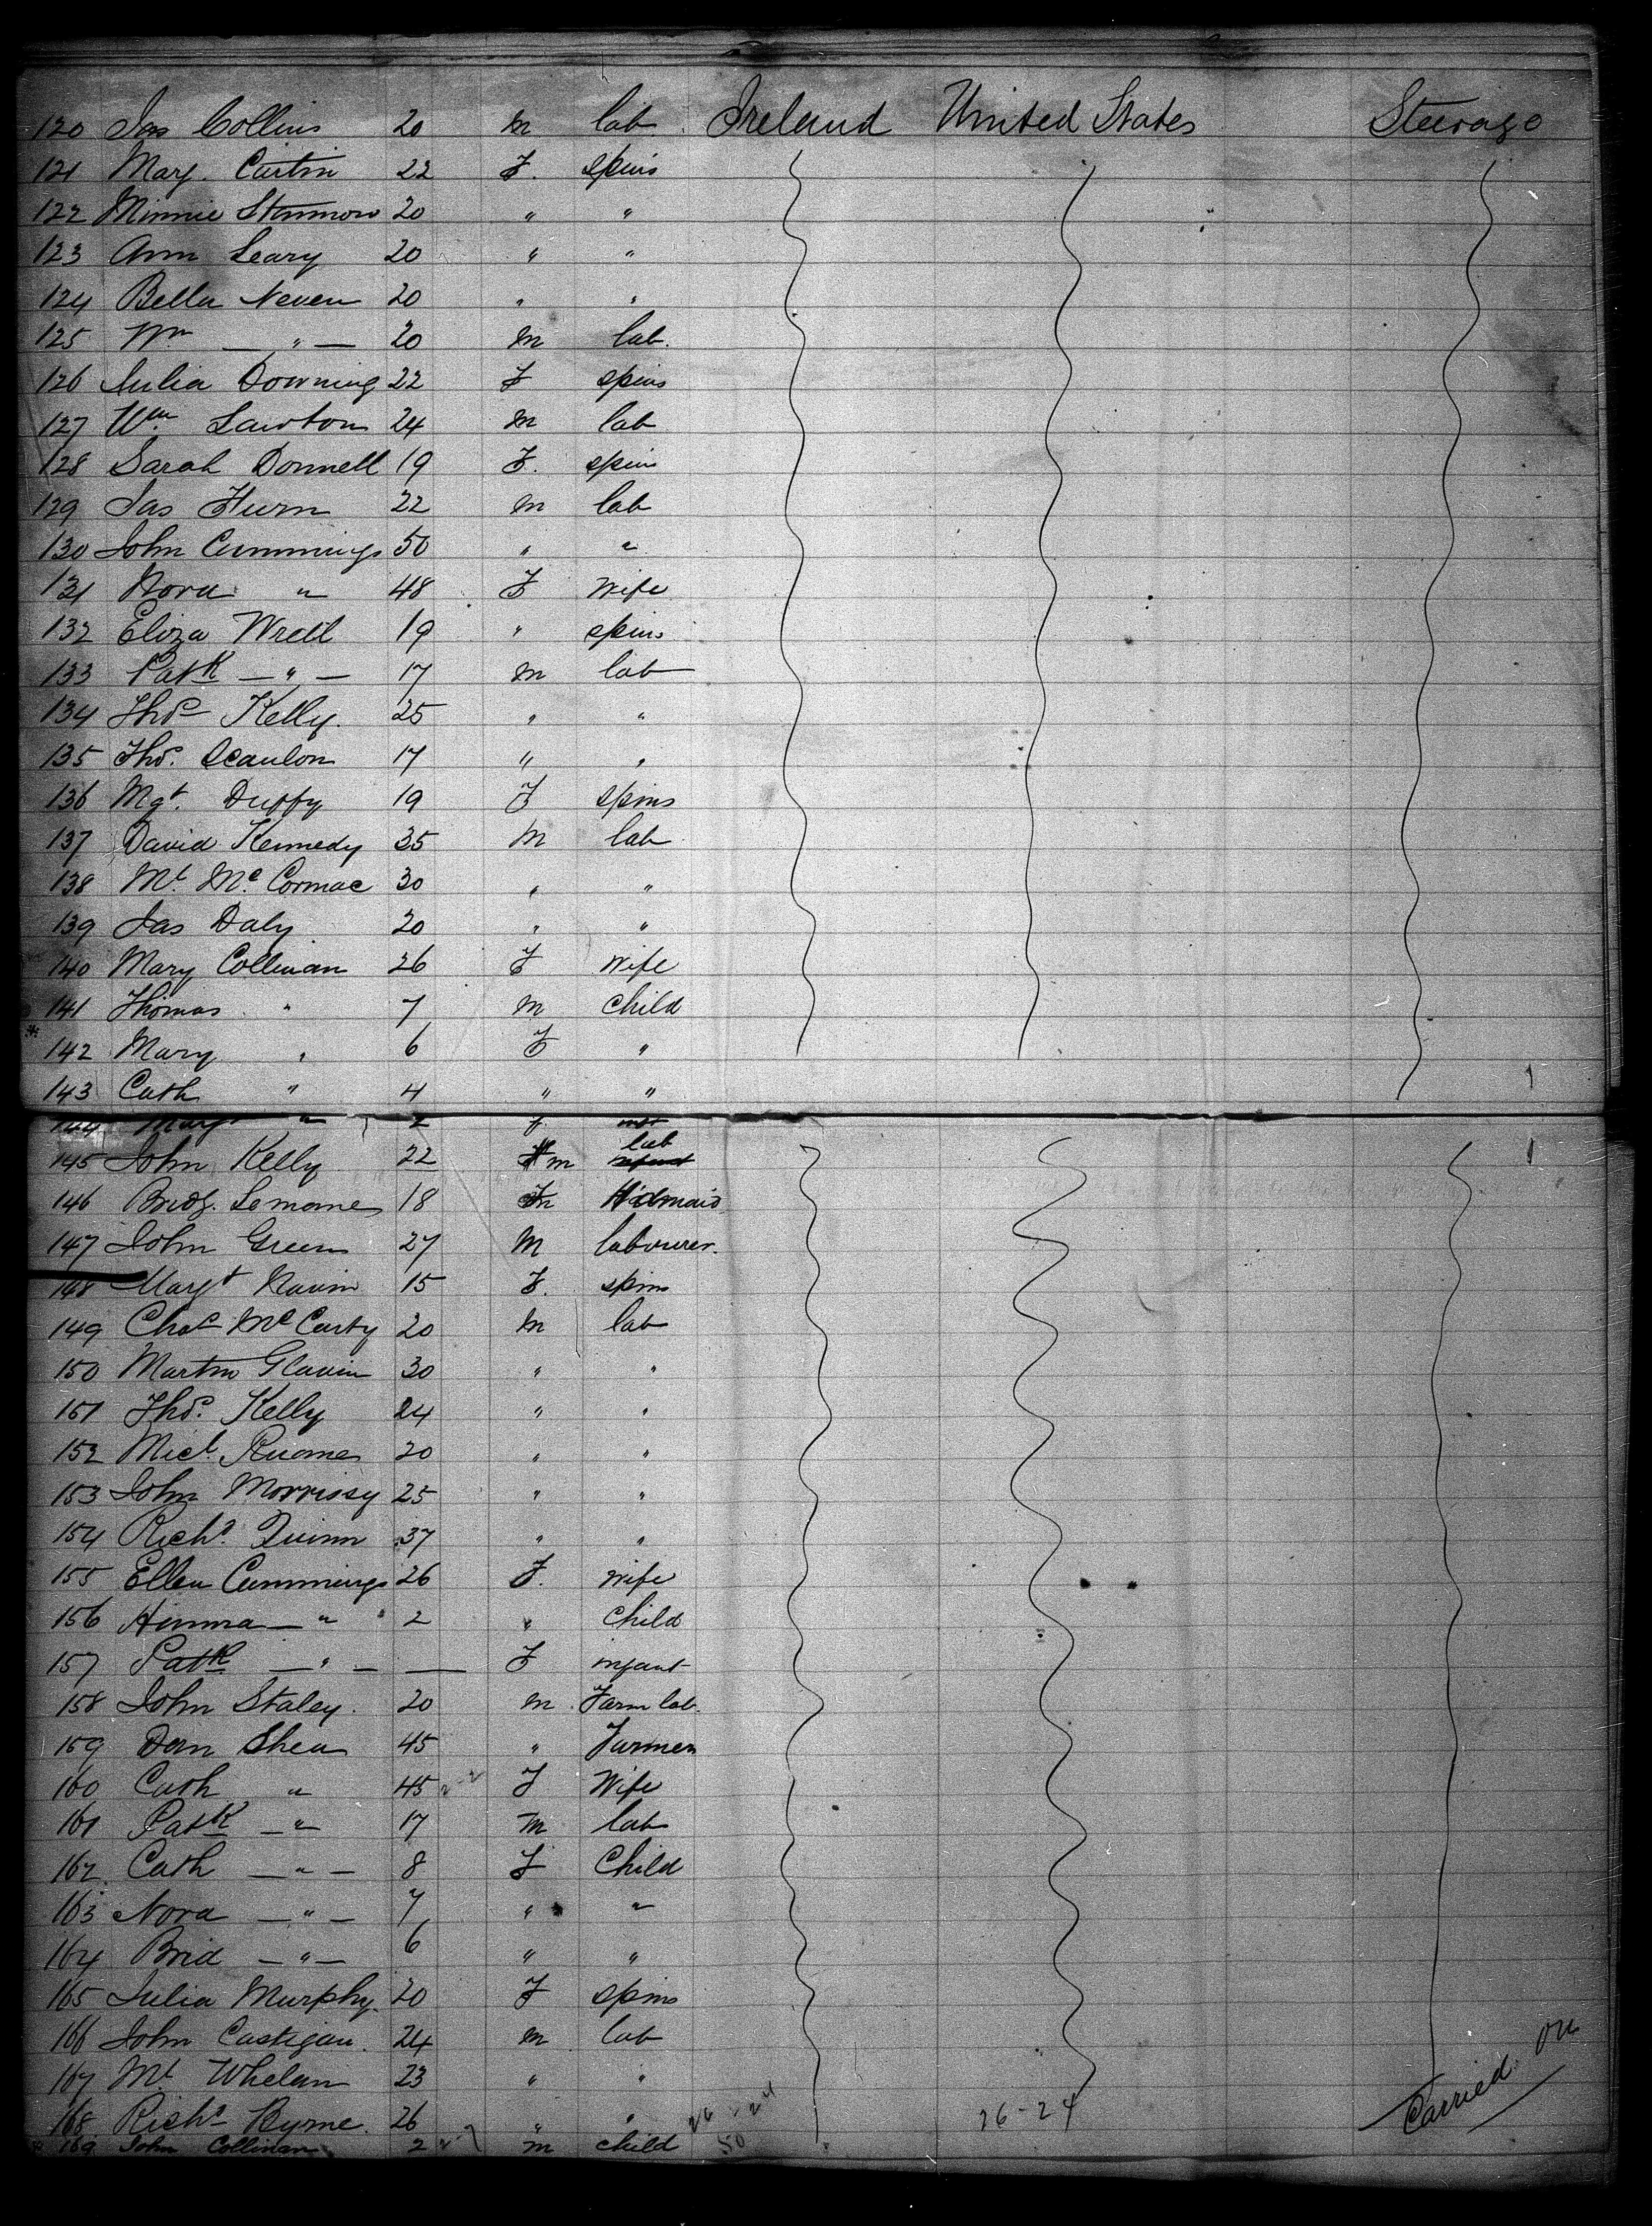 120 Jas Collins 20 m lab Ireland United States Steerage
121 Mary. Curtin 22 F. spins
122 Minnie 20 " "
123 Ann Leary 20 " "
124 Bella Neven 20 " "
125 Wm — " — 20 m lab.
126 Julia Downing 22 F spins
127 Wm Lawton 24 m lab
128 Sarah Donnell 19 F. spins
129 Jas 22 m lab
130 John Cummings 50 " "
131 Nora " 48 F Wife
132 Eliza 19 " spins
133 Patk — " — 17 m lab
134 Thos Kelly. 25 " "
135 Thos. Scanlon 17 " "
136 Mgt. Duffy 19 F spins
137 David Kennedy 35 m lab
138 Ml. Mc. Cormac 30 " "
139 Jas Daly 20 " "
140 Mary Collinan 26 F Wife
141 Thomas " 7 m child
* 142 Mary " 6 F "
143 Cath " 4 " "
144 Margt " 2 f
145 John Kelly 22 m lab
146 Bridg. 18
147 John Green 27 M labourer.
148 Margt 15 F. spins
149 Chas Mc Carty 20 m lab
150 Martin Glavin 30 " "
151 Thos. Kelly 24 " "
152 Micl. 20 " "
153 John Morrissy 25 " "
154 Richd. Quinn 37 " "
155 Ellen Cummings 26 F. wife
156 — " 2 " child
157 Patk — " — — F infant
158 John Staley. 20 m Farm lab.
159 Dan Shea 45 " Farmer
160 Cath " 45 F Wife
161 Patk — " 17 m lab
162. Cath — " — 8 F Child
163 Nora — " — 7 " "
164 Brid — " — 6 " "
165 Julia Murphy. 20 F spins
166 John Castigan. 24 m lab
167 Ml Whelan 23 " "
168 Richd Byrne. 26 " " 26-24 Carried on
* 169 John Collinan 2 m child 50